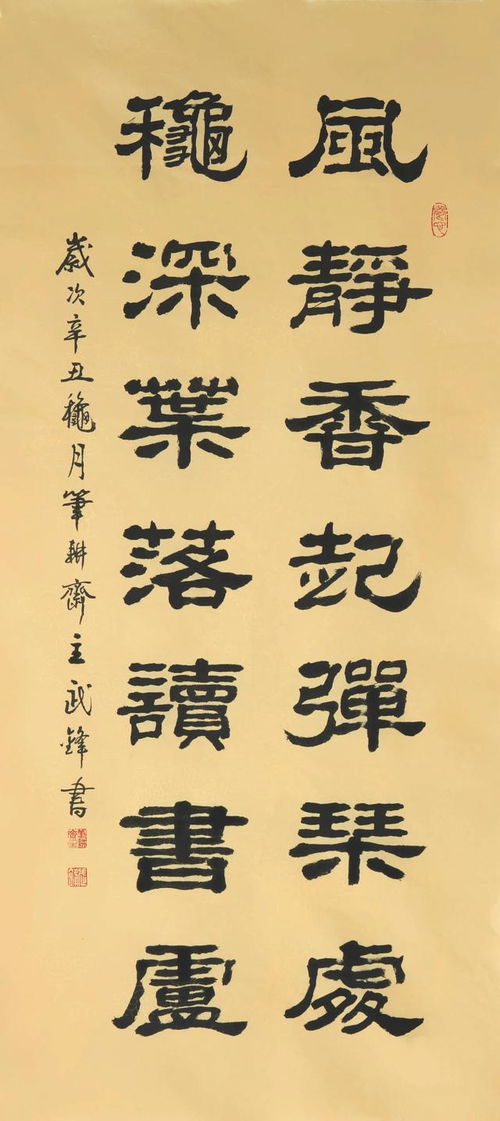 風靜香起彈琴處
龝深葉落讀書盧
歲次辛丑龝月筆耕齋主武鋒書